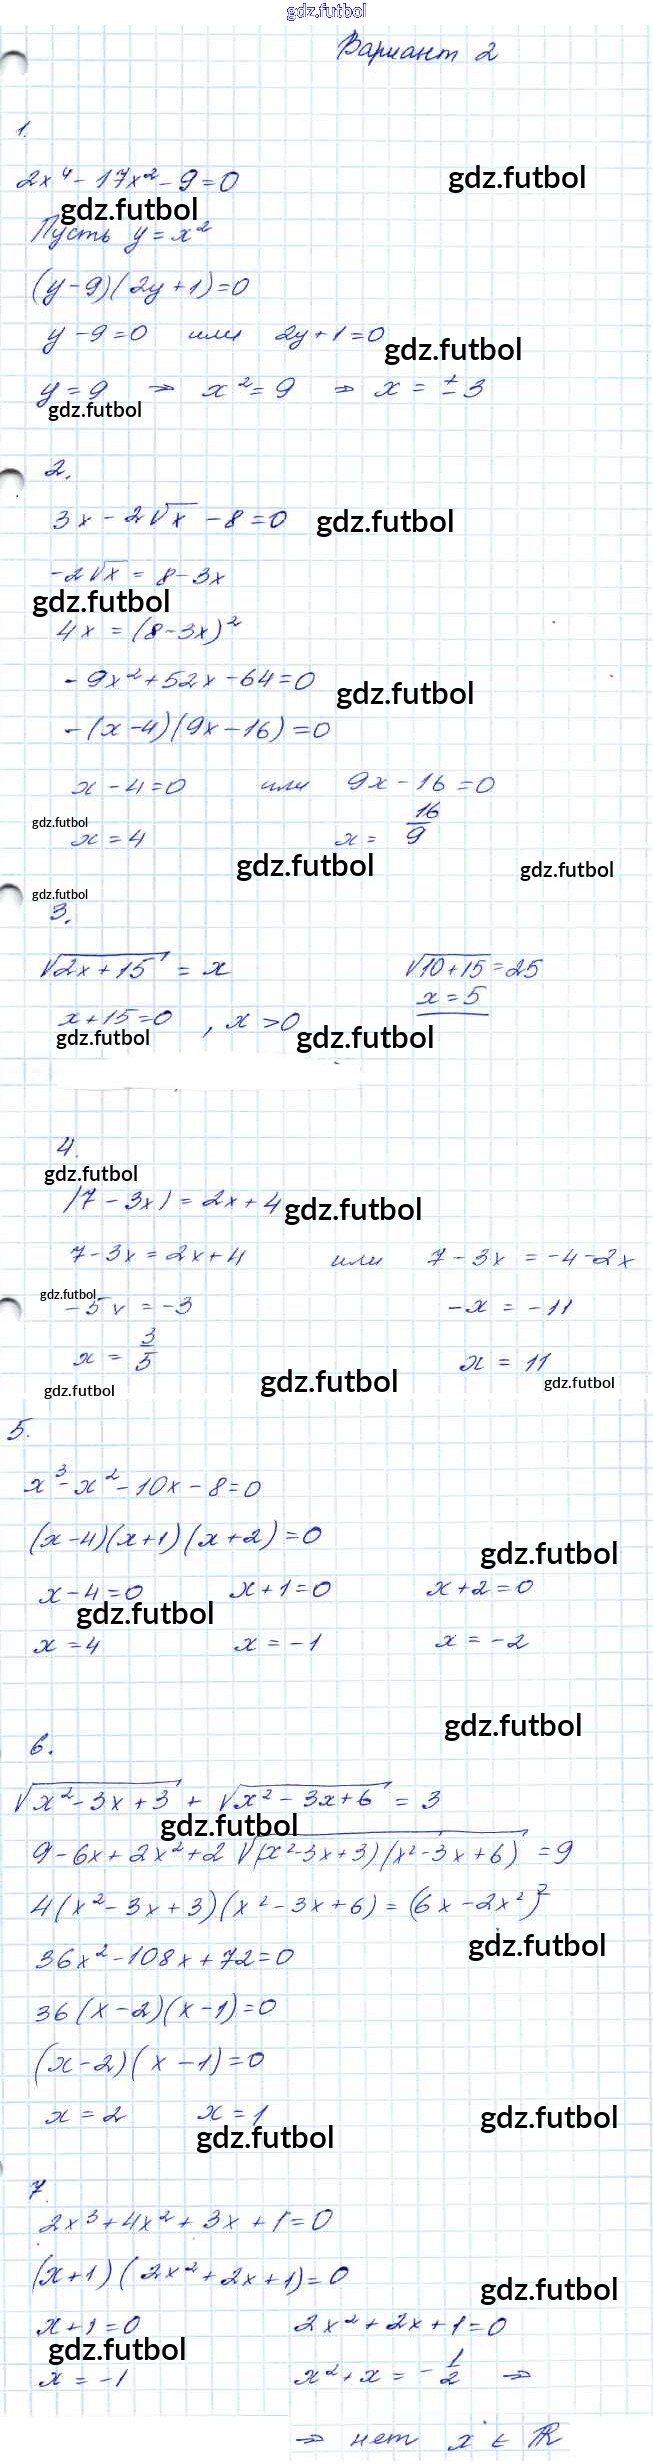 gdz.futbol
Вариант 2
1.
2x⁴ - 17x² - 9 = 0 gdz.futbol
gdz.futbol
Пусть y = x²
(y - 9)(2y + 1) = 0
y - 9 = 0 или 2y + 1 = 0 gdz.futbol
y = 9 ⇒ x² = 9 ⇒ x = ± 3
gdz.futbol
2.
3x - 2√x - 8 = 0 gdz.futbol
-2√x = 8 - 3x
gdz.futbol
4x = (8 - 3x)²
- 9x² + 52x - 64 = 0 gdz.futbol
- (x - 4)(9x - 16) = 0
x - 4 = 0 или 9x - 16 = 0
gdz.futbol
x = 4 x = 16/9
gdz.futbol gdz.futbol
gdz.futbol
3.
√(2x + 15) = x √(10 + 15) = 25
x + 15 = 0 , x > 0 x = 5
gdz.futbol gdz.futbol
4.
gdz.futbol
|7 - 3x| = 2x + 4 gdz.futbol
7 - 3x = 2x + 4 или 7 - 3x = -4 - 2x
gdz.futbol
-5x = -3 -x = -11
x = 3/5 x = 11
gdz.futbol gdz.futbol gdz.futbol
5.
x³ - x² - 10x - 8 = 0
(x - 4)(x + 1)(x + 2) = 0
gdz.futbol
x - 4 = 0 x + 1 = 0 x + 2 = 0
gdz.futbol
x = 4 x = -1 x = -2
gdz.futbol
6.
√(x² - 3x + 3) + √(x² - 3x + 6) = 3
gdz.futbol
9 - 6x + 2x² + 2√((x² - 3x + 3)(x² - 3x + 6)) = 9
4(x² - 3x + 3)(x² - 3x + 6) = (6x - 2x²)²
gdz.futbol
36x² - 108x + 72 = 0
36(x - 2)(x - 1) = 0
(x - 2)(x - 1) = 0
x = 2 x = 1 gdz.futbol
gdz.futbol
7.
2x³ + 4x² + 3x + 1 = 0
(x + 1)(2x² + 2x + 1) = 0 gdz.futbol
x + 1 = 0 2x² + 2x + 1 = 0
gdz.futbol
x = -1 x² + x = -1/2 ⇒
⇒ нет x ∈ R